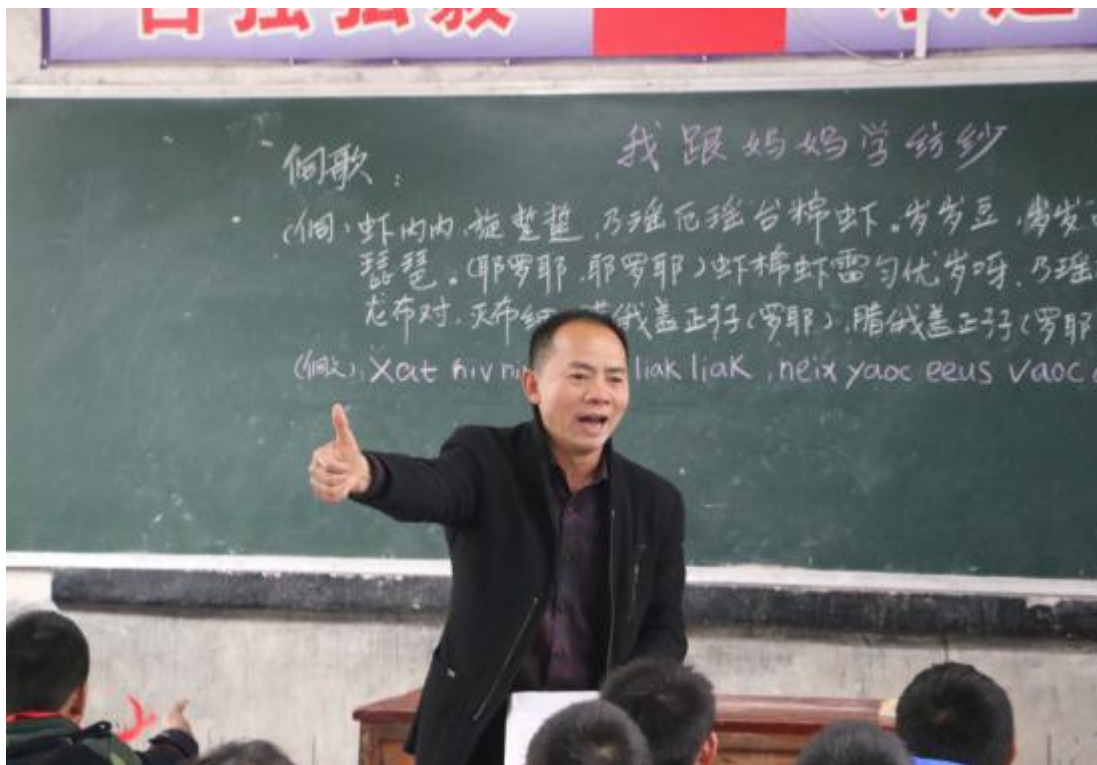 自强
侗歌：
我跟妈妈学纺纱
(侗)虾内内,旋蜇蜇,乃瑶厄瑶台棉虾。岁岁豆,岁岁
琵琶。(耶罗耶,耶罗耶)虾棉虾雷匀优岁呀,乃瑶
龙布对,灭布 俄盖正孖(罗耶),腊俄盖正孖(罗耶
(侗文) Xat niv liak liak, neix yaoc eeus vaoc